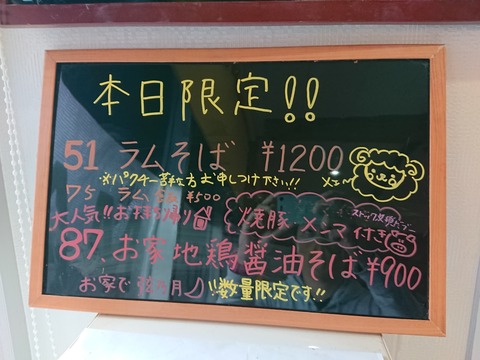 本日限定!!
51 ラムそば ¥1200
メェ〜
※パクチー苦手な方お申しつけ下さい!!
75 ラム ¥500
大人気!!お持ち帰り
焼豚 メンマ 付き
87、お家地鶏醤油そば¥900
お家で 弦乃月 !!数量限定です!!